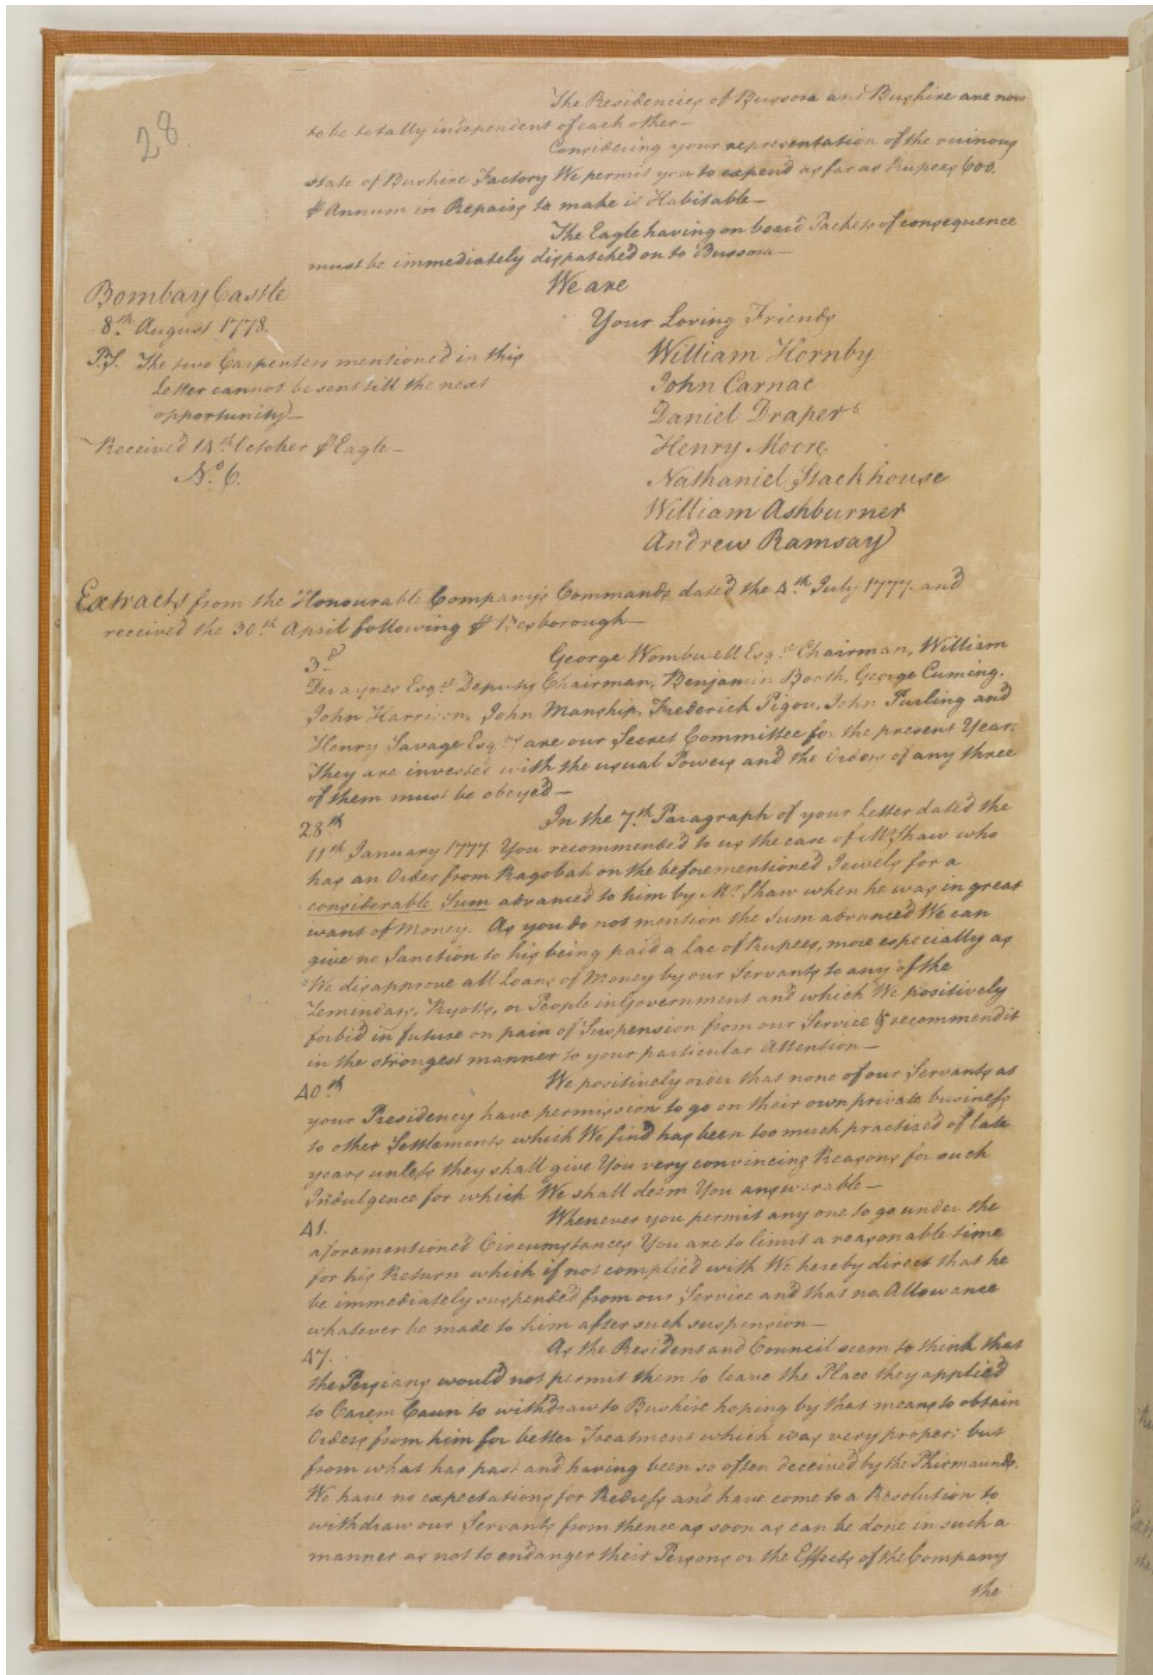 28
The Residencies of Bussora and Bushire are now
to be totally independent of each other—
Considering your representation of the ruinous
state of Bushire Factory We permit you to expend as far as Rupees 600.
⅌ Annum in Repairs to make it Habitable—
The Eagle having on board Packets of consequence
must be immediately dispatched on to Bussora—
We are
Bombay Castle
8th August 1778.
Your Loving Friends
P.S. The two Carpenters mentioned in this
Letter cannot be sent till the next
opportunity—
Received 14th October ⅌ Eagle—
No. 6.
William Hornby
John Carnac
Daniel Draper
Henry Moore
Nathaniel Stackhouse
William Ashburner
Andrew Ramsay
Extracts from the Honourable Company's Commands dated the 4th July 1777. and
received the 30th April following ⅌ Besborough—
3d
George Wombwell Esqr. Chairman, William
Devaynes Esqr. Deputy Chairman, Benjamin Booth, George Cuming,
John Harrison, John Manship, Frederick Pigou, John Purling and
Henry Savage Esqrs. are our Secret Committee for the present Year.
They are invested with the usual Powers and the Orders of any three
of them must be obeyed—
28th
In the 7th Paragraph of your Letter dated the
11th January 1777. You recommended to us the case of Mr. Shaw who
has an Order from Ragobah on the beforementioned Jewels for a
considerable Sum advanced to him by Mr. Shaw when he was in great
want of Money. As you do not mention the Sum advanced We can
give no Sanction to his being paid a Lac of Rupees, more especially as
We disapprove all Loans of Money by our Servants to any of the
Zemindars, Ryotts, or People in Government and which We positively
forbid in future on pain of Suspension from our Service & recommend it
in the strongest manner to your particular Attention—
40th
We positively order that none of our Servants at
your Presidency have permission to go on their own private business
to other Settlements which We find has been too much practised of late
years unless they shall give You very convincing Reasons for such
Indulgence for which We shall deem You answerable—
41.
Whenever you permit any one to go under the
aforementioned Circumstances You are to limit a reasonable time
for his Return which if not complied with We hereby direct that he
be immediately suspended from our Service and that no Allowance
whatever be made to him after such suspension—
47.
As the Resident and Council seem to think that
the Persians would not permit them to leave the Place they applied
to Carem Caun to withdraw to Bushire hoping by that means to obtain
Orders from him for better Treatment which was very proper; but
from what has past and having been so often deceived by the Phirmaunds.
We have no expectations for Redress and have come to a Resolution to
withdraw our Servants from thence as soon as can be done in such a
manner as not to endanger their Persons or the Effects of the Company
the